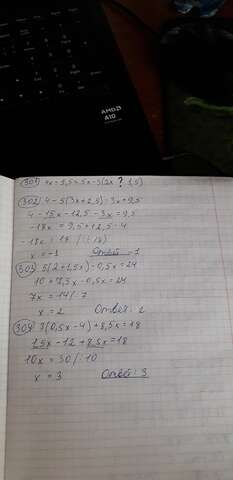 AMD
A10
301 4x - 5,5 = 5x - 3(2x ? 1,5)
302 4 - 5(3x + 2,5) = 3x + 9,5
4 - 15x - 12,5 - 3x = 9,5
-18x = 9,5 + 12,5 - 4
-18x = 18 /:(-18)
x = -1 Ответ -1
303 5(2 + 1,5x) - 0,5x = 24
10 + 7,5x - 0,5x = 24
7x = 14 /:7
x = 2 Ответ: 2
304 3(0,5x - 4) + 8,5x = 18
1,5x - 12 + 8,5x = 18
10x = 30 /:10
x = 3 Ответ: 3